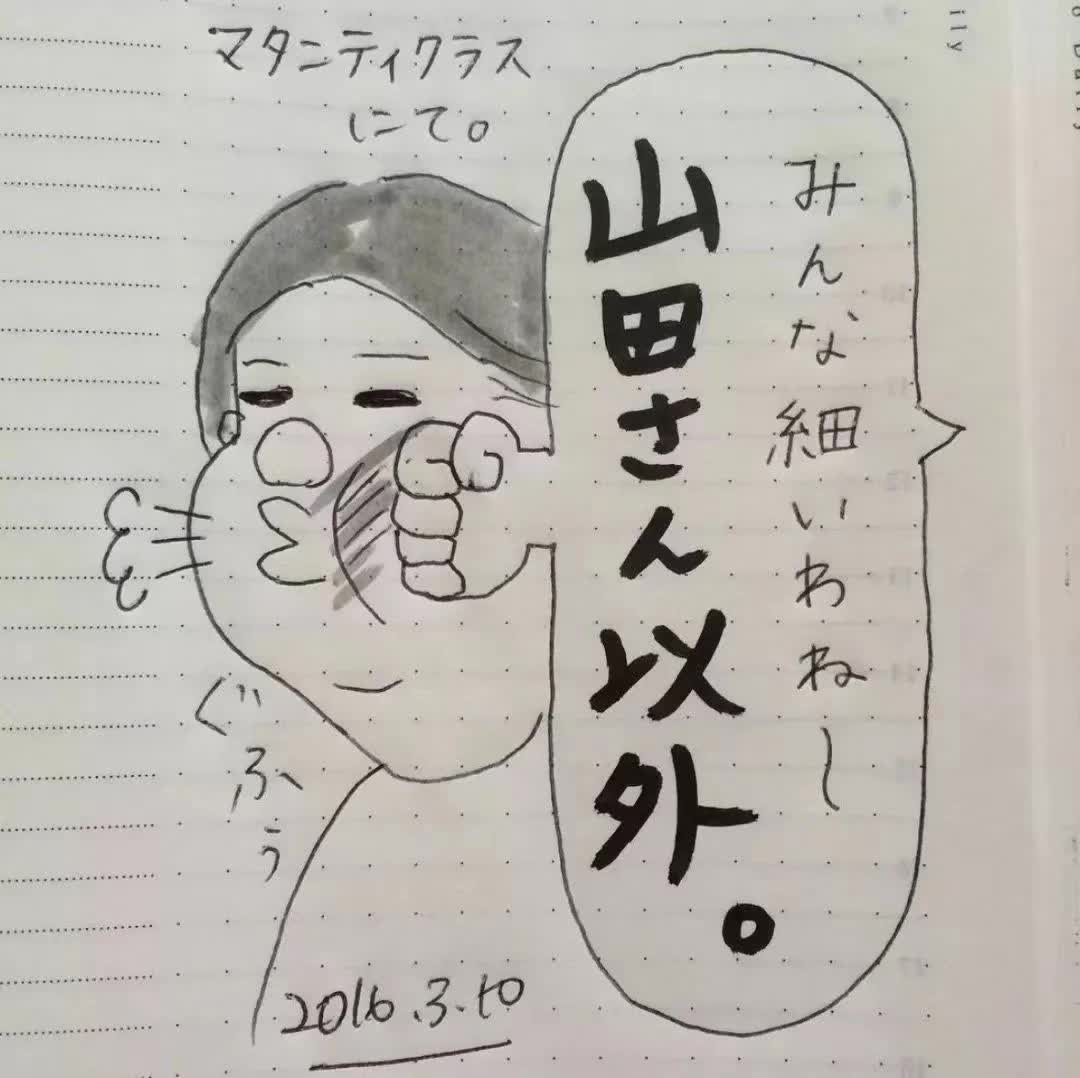 マタニティクラス
にて。
みんな細いわねー
山田さん以外。
ぐふぅ
2016.3.10